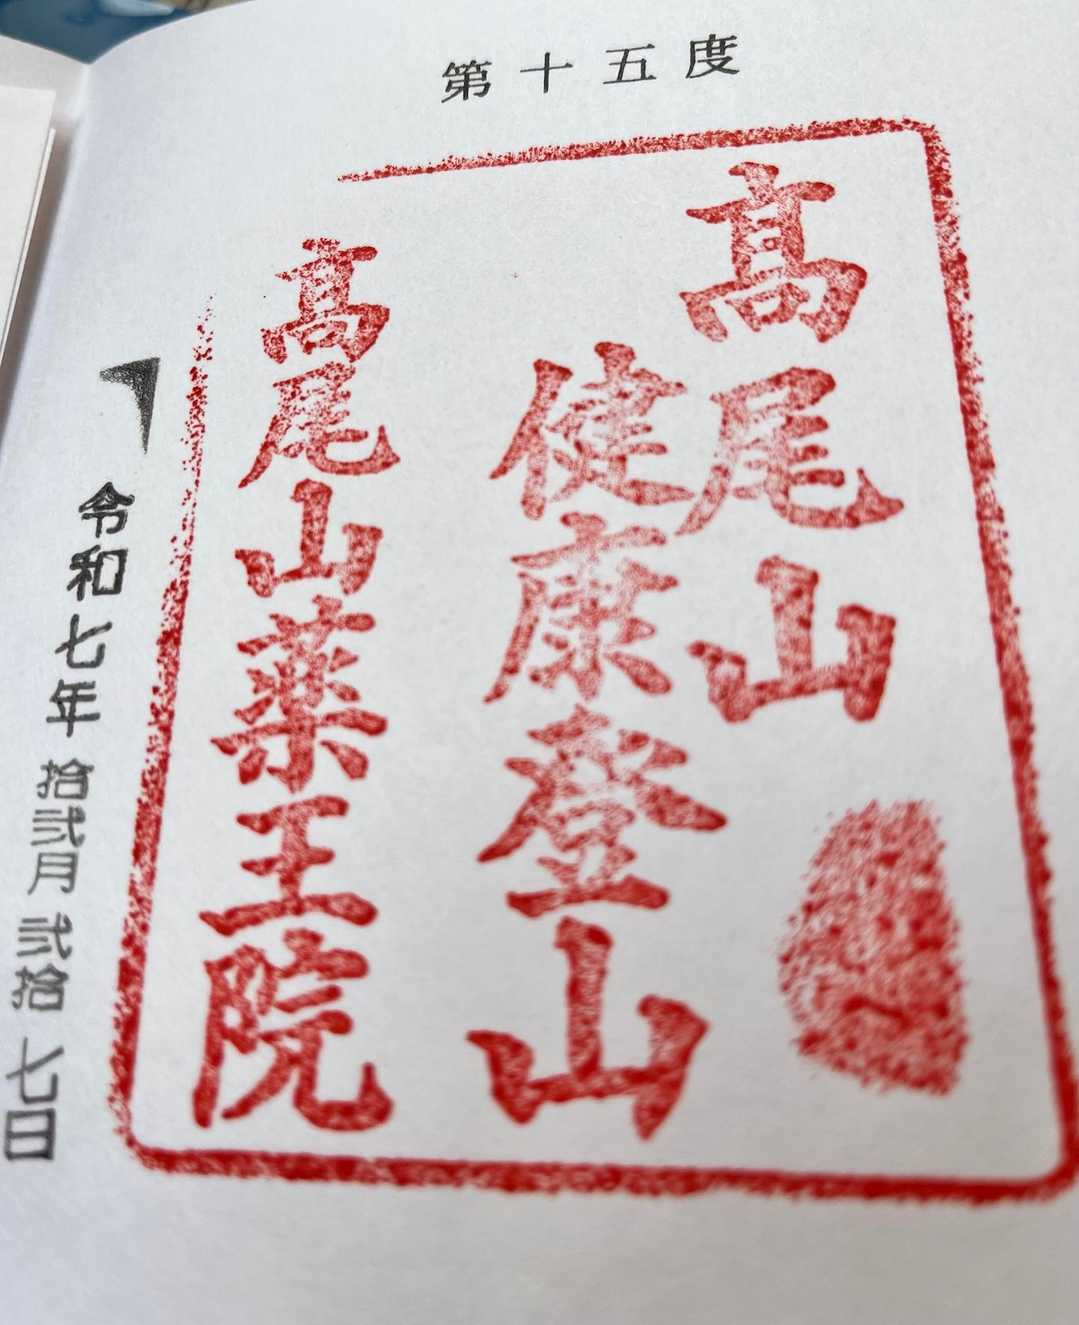 第十五度
髙尾山
健康登山
髙尾山薬王院
令和七年拾弐月弐拾七日